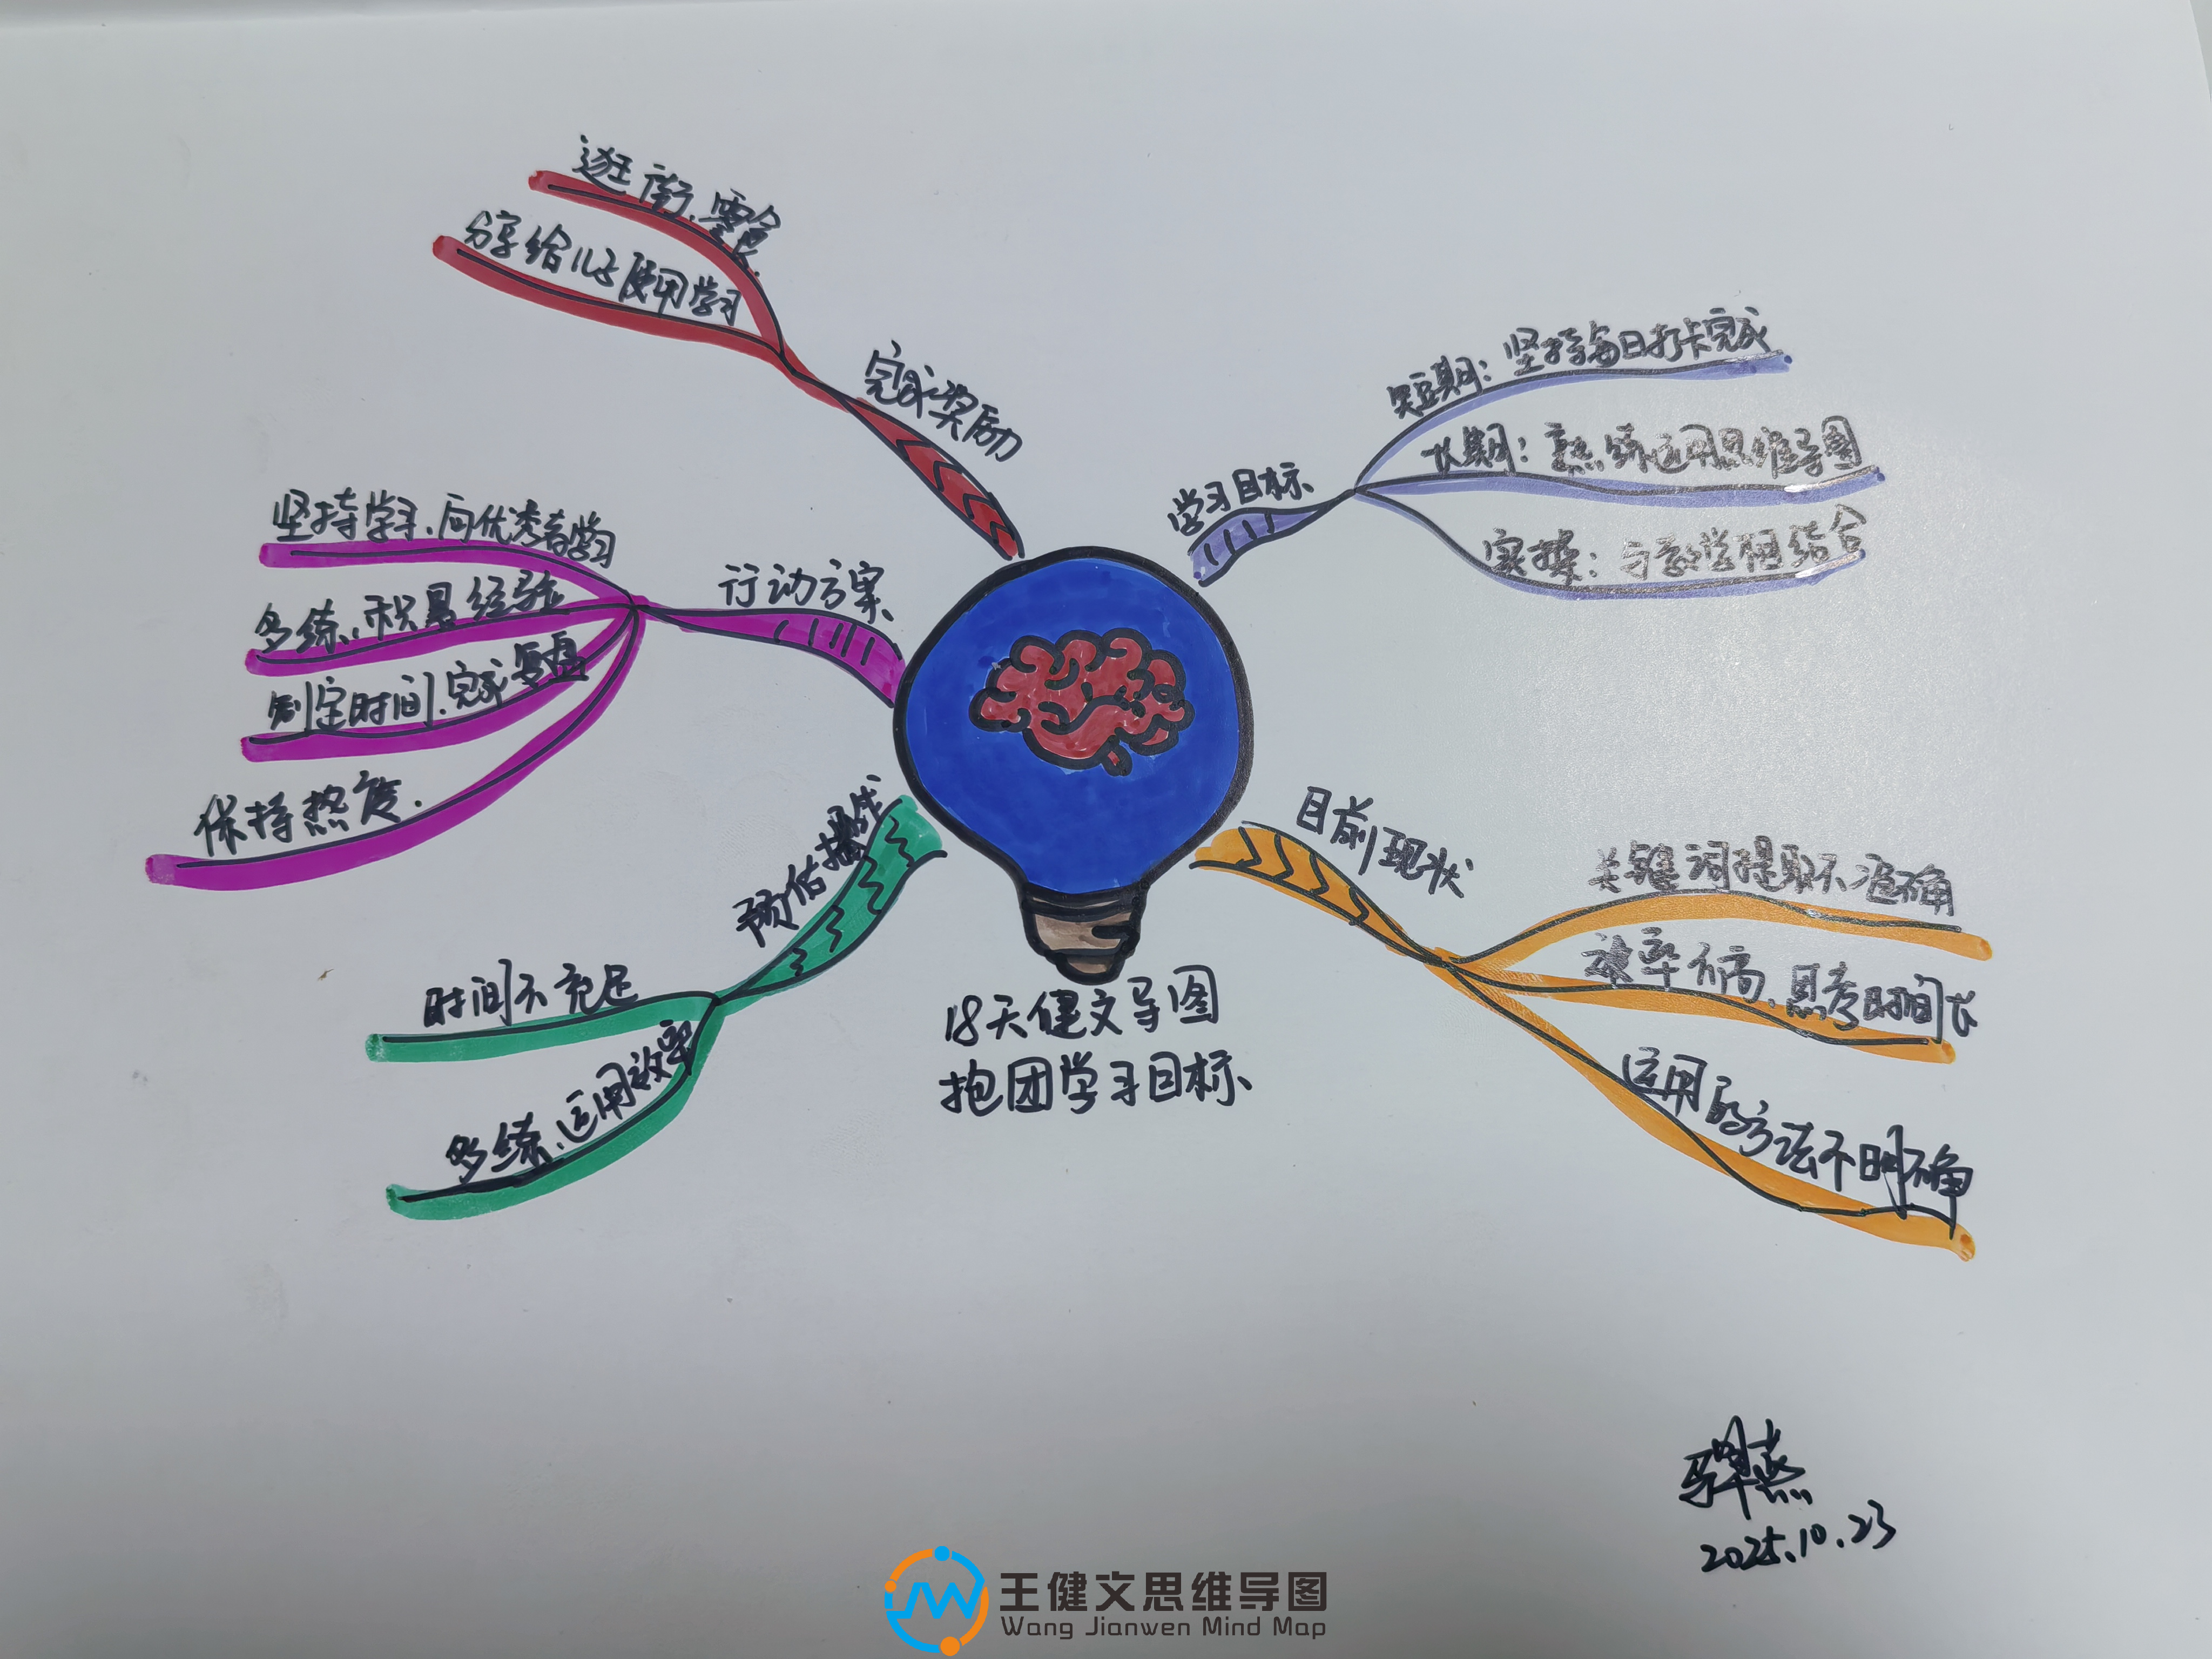 18天健文导图
抱团学习目标
学习目标
短期：坚持每日打卡完成
长期：熟练运用思维导图
实操：与教学相结合
目前现状
关键词提取不准确
效率不高、思考时间长
运用的方法不明确
预估挑战
时间不充足
多练、运用效率
行动方案
坚持学习、向优秀者学习
多练、积累经验
制定时间、完成复盘
保持热度.
完成奖励
逛街、零食
分享给儿子使用学习
燕
2025.10.23
王健文思维导图
Wang Jianwen Mind Map